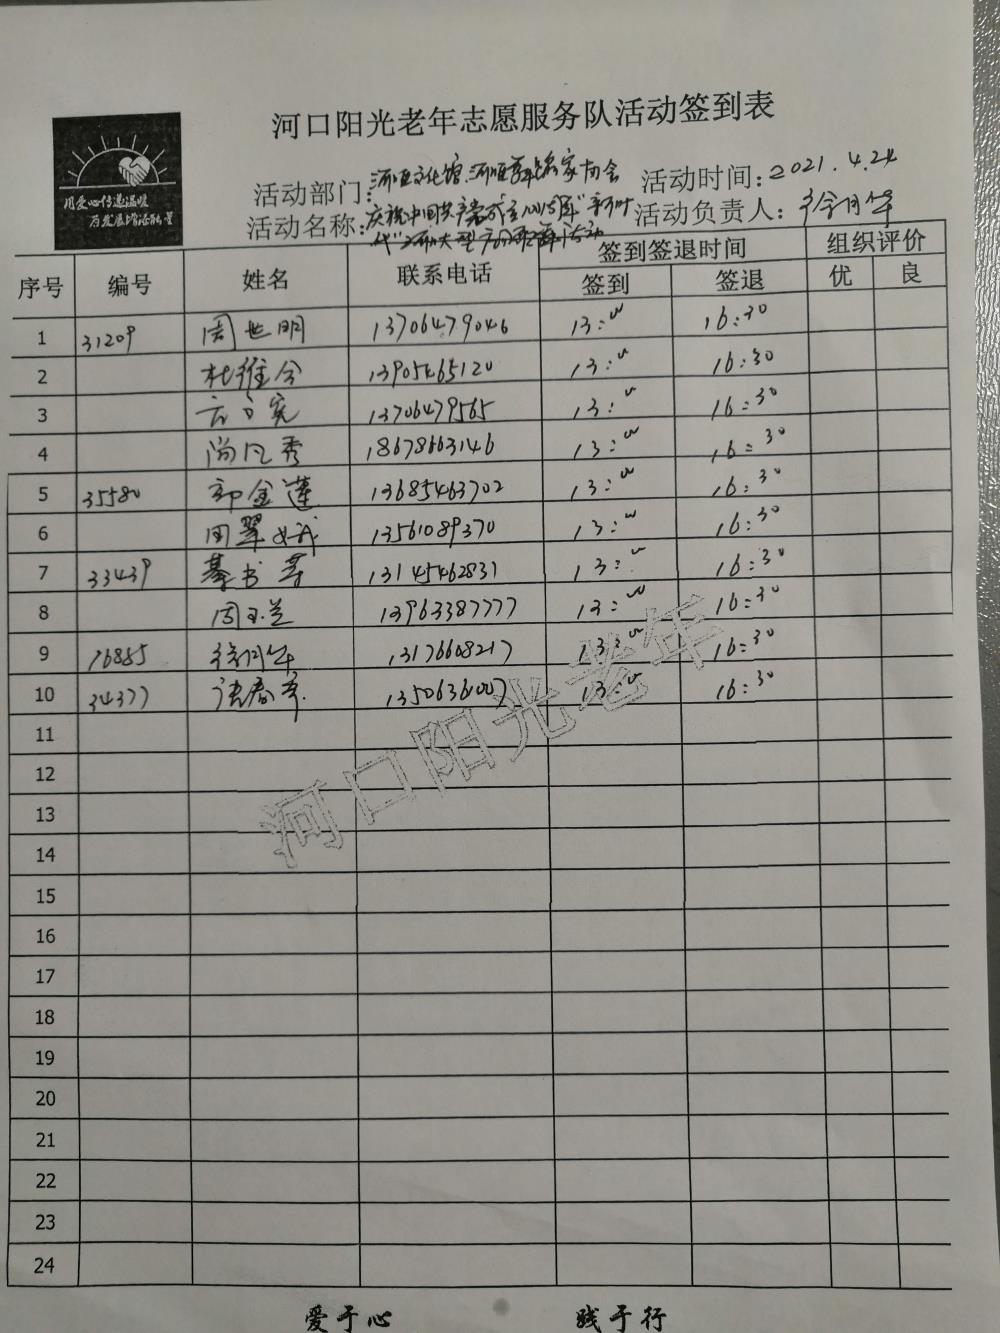 河口阳光老年志愿服务队活动签到表
用爱心传递温暖
活动部门:河口区文化馆、河口区舞蹈家协会 活动时间:2021.4.24
活动名称:庆祝中国共产党成立100周年"新时代" 活动负责人:徐同华
序号 编号 姓名 联系电话 签到签退时间 组织评价
签到 签退 优 良
1 31209 周世明 13706479046 13:00 16:30
2 杜维会 13905465120 13:00 16:30
3 13706479565 13:00 16:30
4 尚凡秀 18678663146 13:00 16:30
5 35580 郭金莲 13685463702 13:00 16:30
6 周翠娥 13561089370 13:00 16:30
7 33439 綦书芬 13145462831 13:00 16:30
8 周玉兰 13963387777 13:00 16:30
9 76885 徐同华 13176608217 13:00 16:30
10 34377 13506361007 13:00 16:30
11
12
13
14
15
16
17
18
19
20
21
22
23
24
河口阳光老年
爱于心 践于行